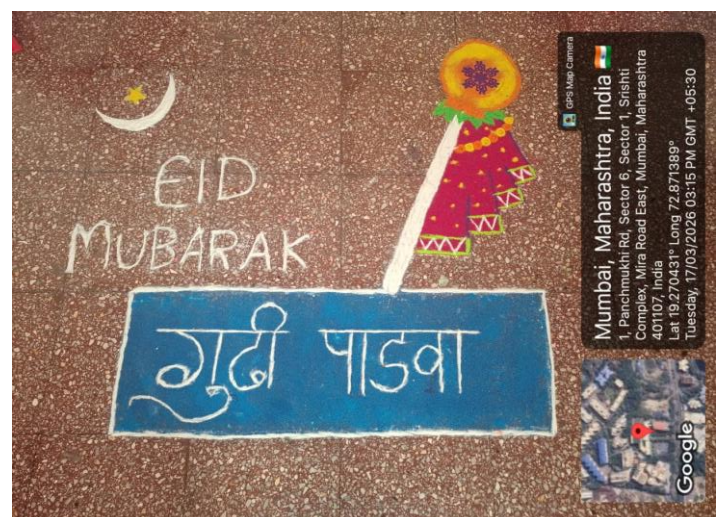 EID
MUBARAK
गुढी पाडवा
GPS Map Camera
Mumbai, Maharashtra, India
1, Panchmukhi Rd, Sector 6, Sector 1, Srishti
Complex, Mira Road East, Mumbai, Maharashtra
401107, India
Lat 19.270431° Long 72.871389°
Tuesday, 17/03/2026 03:15 PM GMT +05:30
Google